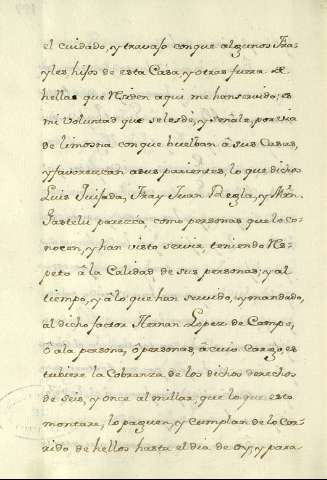 el cuidado, y travajo con que algunos Fra-
yles hijos de esta Casa, y otras fuera de
hellas que residen aqui me han servido; es
mi voluntad que seles dé, y señale, por via
de limosna con que buelban â sus Casas,
y favorezcan a sus parientes, lo que dichos
Luis Quijada, Fray Juan Regla, y Mrn.
Gaztelu parezca, como personas que lo co-
nocen, y han visto servir teniendo res-
peto â la Calidad de sus personas; y al
tiempo, y â lo que han servido, y mandado,
al dicho factor Hernan Lopez de Campo,
ô ala persona, ô personas, â cuio cargo, es
tubiere la Cobranza de los dichos derechos
de seis, y once al millar que lo que esto
montare, lo paguen, y cumplan de lo Cor-
rido de hellos hasta el dia de oy, y para-